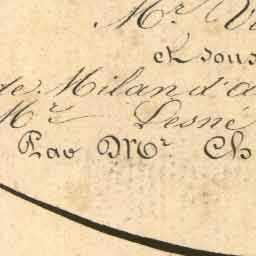 Mr. V
et sous
de Milan d'a
Mr. Lesné
Par Mr. Ch